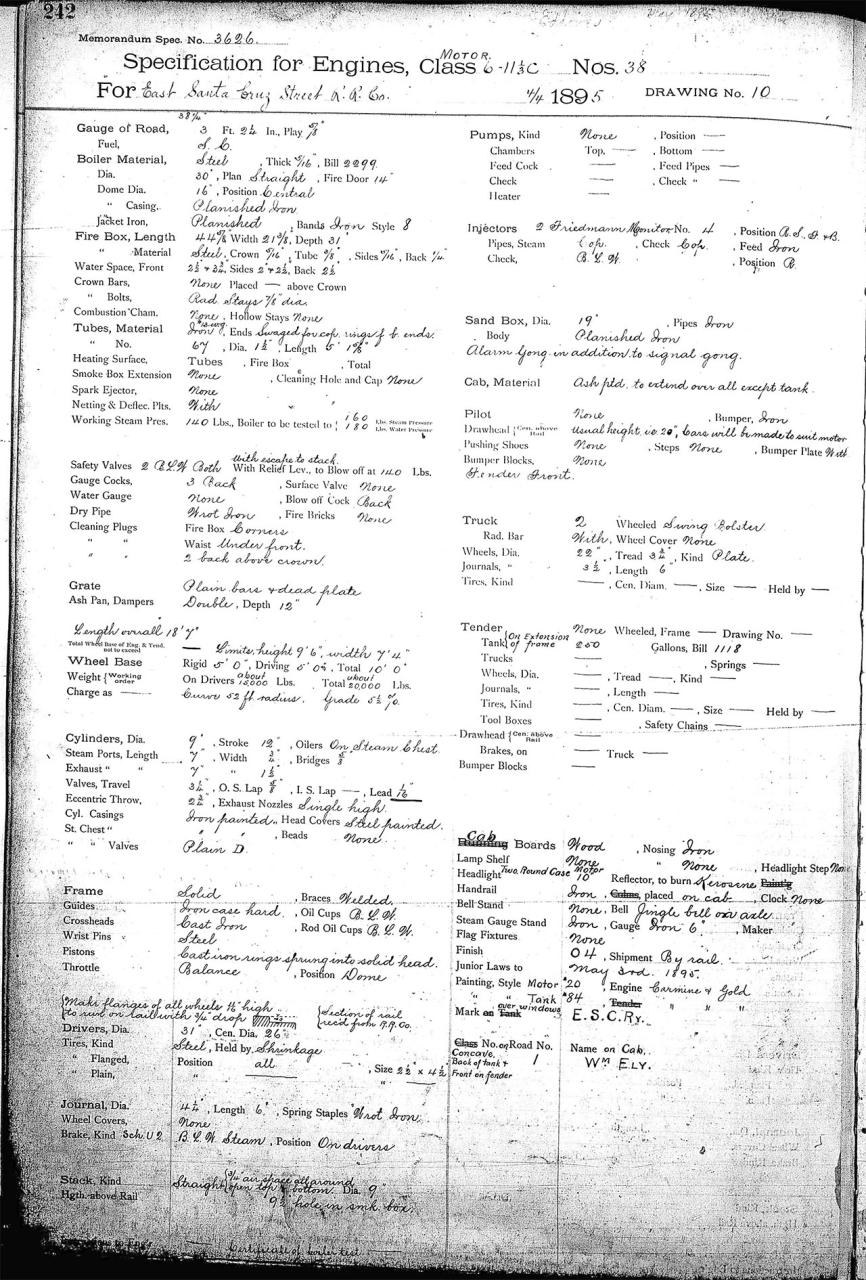 242
Memorandum Spec. No. 3626.
MOTOR
Specification for Engines, Class 6-11⅓C Nos. 38
For East Santa Cruz Street R'. R. Co. 4/4 1895 DRAWING No. 10
38¼"
Gauge of Road, 3 Ft. 2¼ In., Play ⅝"
Fuel, S. C.
Boiler Material, Steel, Thick 5/16", Bill 2299.
Dia. 30", Plan Straight, Fire Door 14"
Dome Dia. 16", Position Central
" Casing, Planished Iron
Jacket Iron, Planished, Bands Iron Style 8
Fire Box, Length 44⅞ Width 21⅜, Depth 31
" Material Steel, Crown 5/16", Tube ⅜", Sides 5/16", Back ¼"
Water Space, Front 2½ + 3½, Sides 2 + 2½, Back 2½
Crown Bars, None Placed — above Crown
" Bolts, Rad. Stays ⅞" dia.
Combustion Cham. None, Hollow Stays None
Tubes, Material Iron, Ends Swaged for cop. rings f. b. ends.
" No. 67, Dia. 1½", Length 5'
Heating Surface, Tubes , Fire Box , Total
Smoke Box Extension None, Cleaning Hole and Cap None
Spark Ejector, None
Netting & Deflec. Plts. With
Working Steam Pres. 140 Lbs., Boiler to be tested to { 160 Lbs. Steam Pressure
180 Lbs. Water Pressure
With escape to stack.
Safety Valves 2 B.L.W. Both With Relief Lev., to Blow off at 140 Lbs.
Gauge Cocks, 3 Back , Surface Valve None
Water Gauge None , Blow off Cock Back
Dry Pipe Wrot Iron , Fire Bricks None
Cleaning Plugs Fire Box Corners
" " Waist Under front.
" " 2 back above crown.
Grate Plain bars & dead plate
Ash Pan, Dampers Double, Depth 12"
Length overall 18' 7"
Total Wheel Base of Eng. & Tend. not to exceed — Limits, height 9' 6", width 7' 4"
Wheel Base Rigid 5' 0", Driving 5' 0", Total 10' 0"
Weight { Working order On Drivers about 15,000 Lbs. Total about 20,000 Lbs.
Charge as — Curve 52 ft. radius. Grade 5½ %.
Cylinders, Dia. 9", Stroke 12", Oilers On Steam Chest
Steam Ports, Length 7", Width ¾", Bridges ⅝"
Exhaust " " 7" " 1½"
Valves, Travel 3¼", O. S. Lap ⅝", I. S. Lap —, Lead 1/16"
Eccentric Throw, 2¾", Exhaust Nozzles Single high.
Cyl. Casings Iron painted, Head Covers Steel painted.
St. Chest " " " , Beads None.
" " Valves Plain D.
Frame Solid , Braces Welded.
Guides Iron case hard., Oil Cups B. L. W.
Crossheads Cast Iron , Rod Oil Cups B. L. W.
Wrist Pins Steel
Pistons Cast iron rings sprung into solid head.
Throttle Balance , Position Dome
{Make flanges of all wheels ½" high
{to run on rail with 3/4" drop {Section of rail rec'd from R.R. Co.
Drivers, Dia. 31, Cen. Dia. 26"
Tires, Kind Steel, Held by Shrinkage
" Flanged, Position all , Size 2½" x 4½"
" Plain, " — "
Journal, Dia. 4¼, Length 6", Spring Staples Wrot Iron,
Wheel Covers, None
Brake, Kind Sch. U 2 B. L. W. Steam, Position On drivers
Stack, Kind Straight {¾" air space all around open top & bottom. Dia. 9"
Hgth. above Rail 9½" hole in smk. box.
Certificate of boiler test
Pumps, Kind None , Position —
Chambers Top, — , Bottom —
Feed Cock — , Feed Pipes —
Check — , Check " —
Heater —
Injectors 2 Friedmann Monitor No. 4 , Position R. S. F. & B.
Pipes, Steam Cop. , Check Cop. , Feed Iron
Check, B. L. W. , Position R.
Sand Box, Dia. 19" , Pipes Iron
Body Planished Iron
Alarm Gong in addition to signal gong.
Cab, Material Ash ptd. to extend over all except tank.
Pilot None , Bumper, Iron
Drawhead { Cen. above Rail Usual height, i.e. 20", Cars will be made to suit motor
Pushing Shoes None , Steps None , Bumper Plate With
Bumper Blocks, None
Fender Front.
Truck 2 Wheeled Swing Bolster
Rad. Bar With, Wheel Cover None
Wheels, Dia. 22", Tread 3¾", Kind Plate.
Journals, " 3½, Length 6"
Tires, Kind — , Cen. Diam. — , Size — Held by —
Tender None Wheeled, Frame — Drawing No. —
Tank {On Extension of frame 250 Gallons, Bill 1118
Trucks — , Springs —
Wheels, Dia. — , Tread — , Kind —
Journals, " — , Length —
Tires, Kind — , Cen. Diam. — , Size — Held by —
Tool Boxes — , Safety Chains —
Drawhead { Cen. above Rail —
Brakes, on — Truck —
Bumper Blocks —
Cab
Running Boards Wood , Nosing Iron
Lamp Shelf None " None , Headlight Step None
Headlight Two, Round Case Motor 10" Reflector, to burn Kerosene Paint'g
Handrail Iron , Colms, placed on cab , Clock None
Bell Stand None, Bell Jingle bell on axle.
Steam Gauge Stand Iron , Gauge Iron 6" , Maker
Flag Fixtures None
Finish O 4 , Shipment By rail.
Junior Laws to May 3rd. 1895.
Painting, Style Motor #20 , Engine Carmine & Gold
" " Tank #84 , Tender " " "
Mark on Tank over windows E. S. C. Ry.
Class No. on Road No. Name on Cab.
Concave, 1 Wm ELY.
Back of tank &
Front on fender